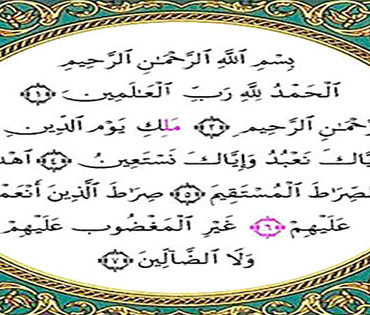 بِسْمِ ٱللَّهِ ٱلرَّحْمَٰنِ ٱلرَّحِيمِ
ٱلْحَمْدُ لِلَّهِ رَبِّ ٱلْعَٰلَمِينَ ﴿١﴾
حْمَٰنِ ٱلرَّحِيمِ ﴿٢﴾ مَلِكِ يَوْمِ ٱلدِّينِ
يَّاكَ نَعْبُدُ وَإِيَّاكَ نَسْتَعِينُ ﴿٤﴾ ٱهْدِ
لصِّرَٰطَ ٱلْمُسْتَقِيمَ ﴿٥﴾ صِرَٰطَ ٱلَّذِينَ أَنْعَمْ
عَلَيْهِمْ ﴿٦﴾ غَيْرِ ٱلْمَغْضُوبِ عَلَيْهِمْ
وَلَا ٱلضَّآلِّينَ ﴿٧﴾